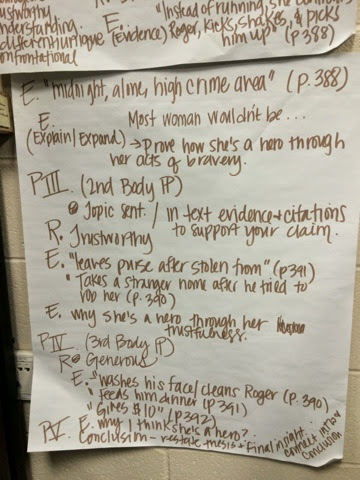 trustworthy
understanding
different/unique
confrontational
E. "Instead of running, she
(evidence) Roger, kicks, shakes, & picks
him up" (p.388)
E. "midnight, alone, high crime area" (p.388)
E. Most woman wouldn't be...
(Explain/Expand) → Prove how she's a hero through
her acts of bravery.
PIII. (2nd Body P)
Topic sent. / in text evidence + citations
to support your claim.
R. Trustworthy
E. "leaves purse after stolen from" (p391)
"Takes a stranger home after he tried to
rob her (p.390)
E. why she's a hero through her
trustfulness.
PIV. (3rd Body P)
R. Generous
E. "washes his face/cleans Roger (p.390)
"feeds him dinner (p391)
"Gives $10" (p392)
E. why I think she's a hero?
PV. Conclusion - restate thesis + final insight...
connect intro w/
conclusion